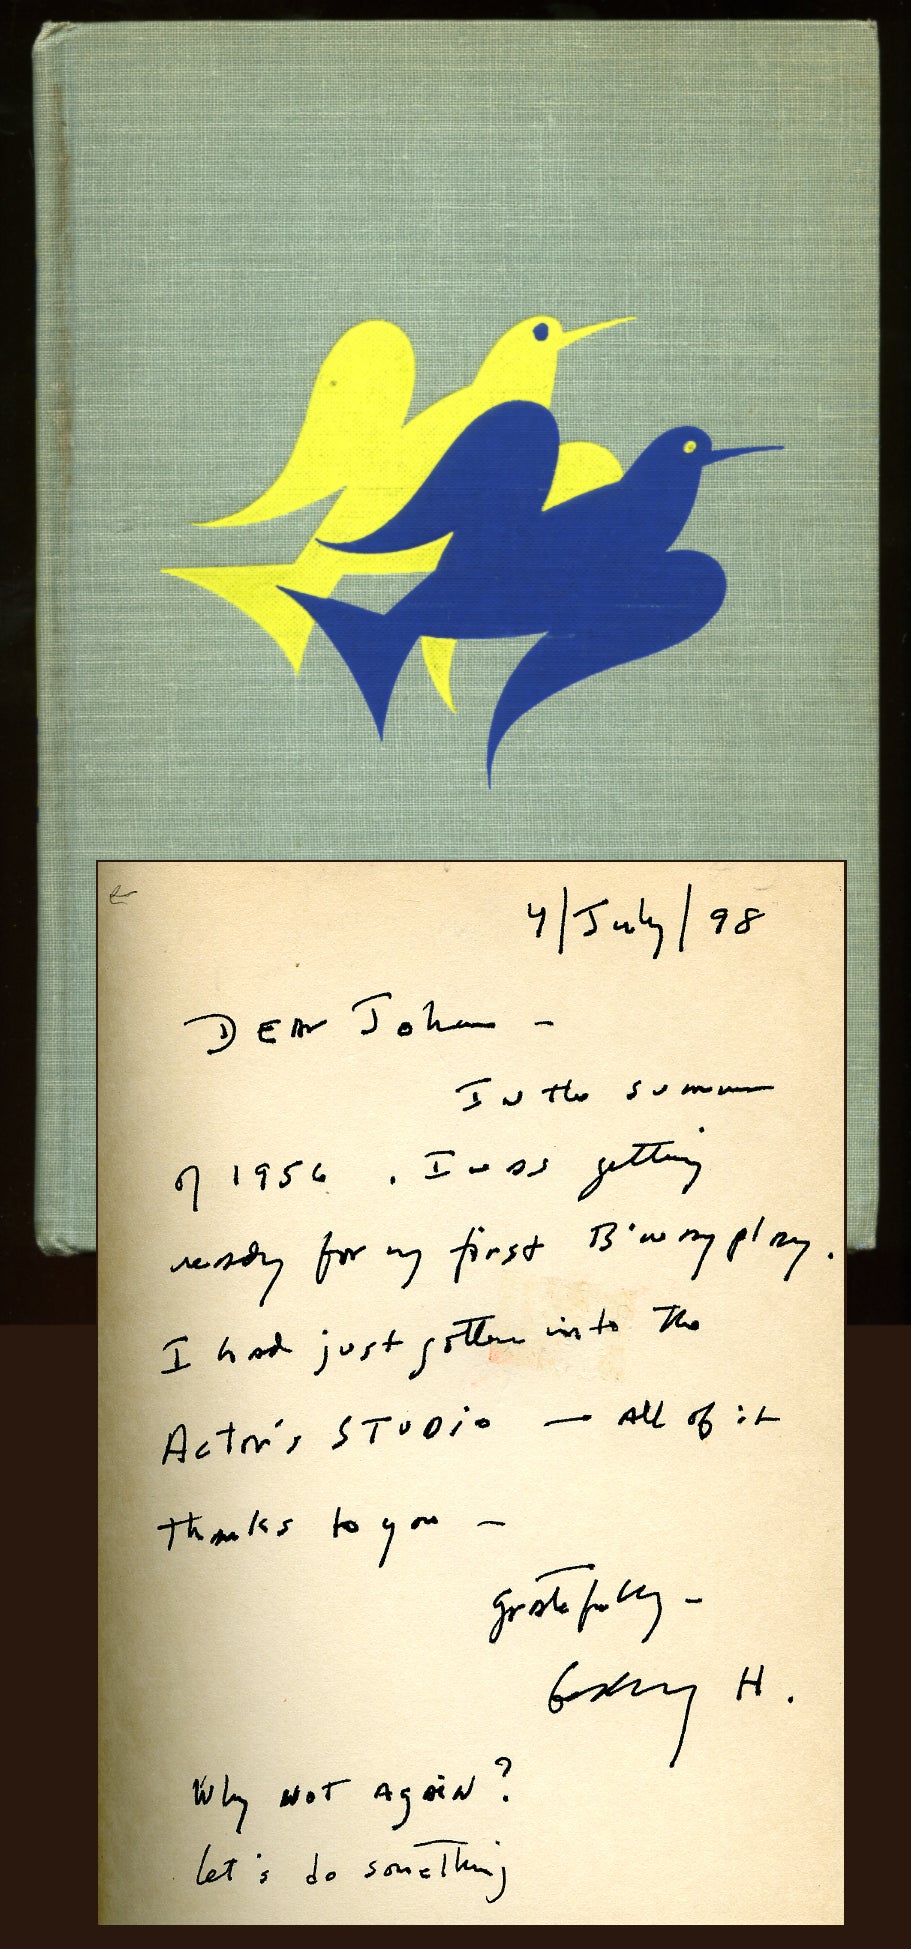 4/July/98
DEAr John —
In the summer
of 1956 . I was getting
ready for my first B'way play.
I had just gotten into the
Actor's STUDiO — All of it
thanks to you —
gratefully —
H.
Why NOT AgAiN?
Let's do something